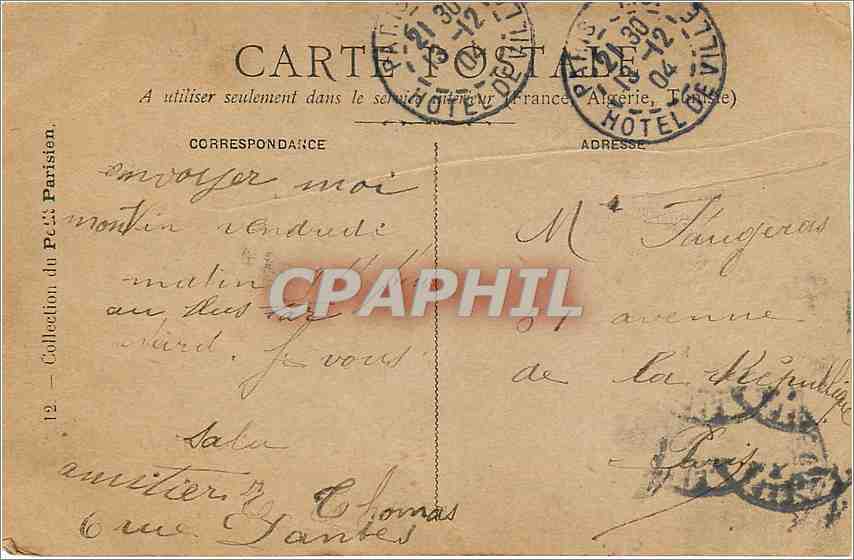 PARIS
21 30
13-12
04
HOTEL DE VILLE
PARIS
21 30
13-12
04
HOTEL DE VILLE
CARTE POSTALE
A utiliser seulement dans le service intérieur (France, Algérie, Tunisie)
CORRESPONDANCE
ADRESSE
12. — Collection du Petit Parisien.
envoyer moi
vendredi
matin
au plus tar
Je vous
Salu
amitier
Thomas
6 rue
Mr Faugeras
avenue
de la République
Paris
CPAPHIL